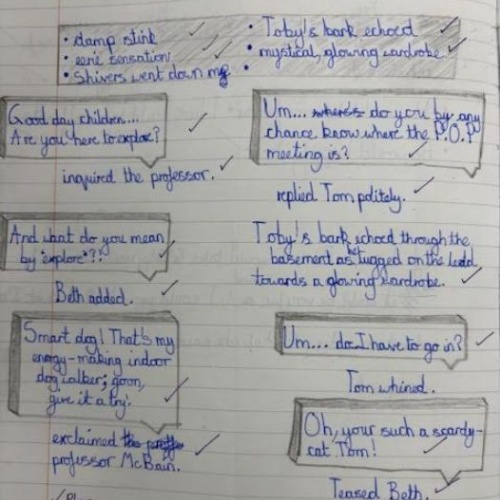 • damp stink
• eerie sensation
• Shivers went down my
• Toby's bark echoed
• mystical, glowing wardrobe
•
Good day children...
Are you here to explore?
inquired the professor.
Um... where's do you by any
chance know where the P.O.P
meeting is?
replied Tom politely.
And what do you mean
by 'explore'?!
Beth added.
Toby's bark echoed through the
basement as he tugged on the lead
towards a glowing wardrobe.
Smart dog! That's my
energy-making indoor
dog walker; goon,
give it a try.
exclaimed the
professor McBain.
Um... do I have to go in?
Tom whined.
Oh, your such a scardy-
cat, Tom!
Teased Beth